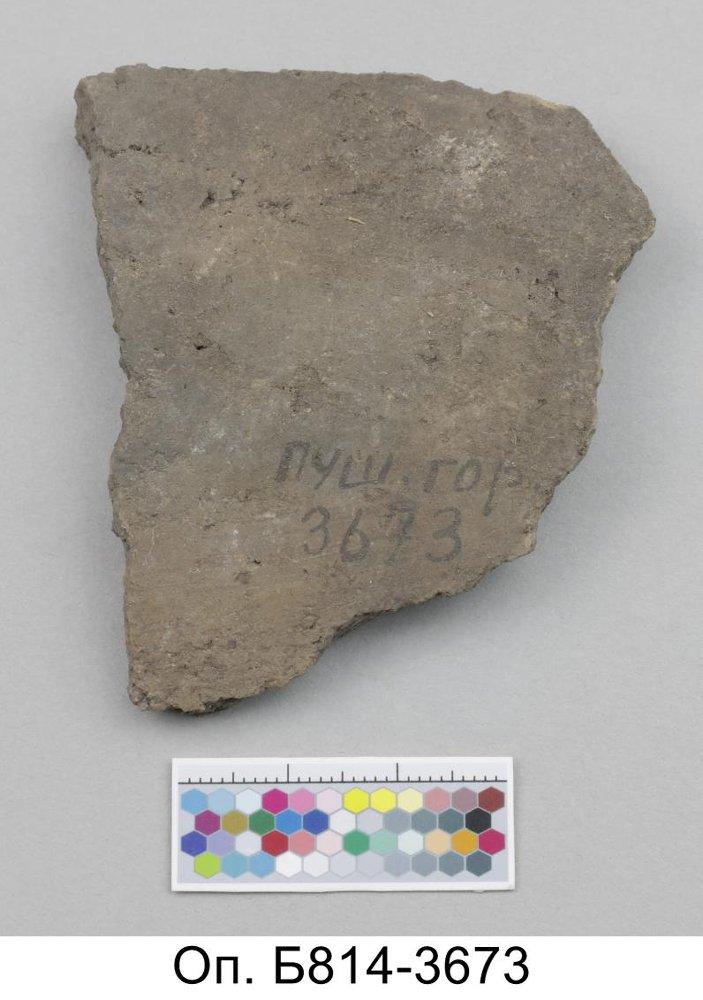 ПУШ. ГОР.
3673
Оп. Б814-3673